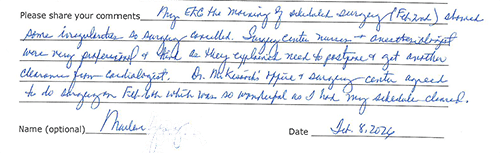 Please share your comments My EKG the morning of scheduled surgery (Feb 2nd) showed
some irregularities so surgery cancelled. Surgery center nurses + anesthesiologist
were very professional & kind as they explained need to postpone & get another
clearance from cardiologist. Dr. office & surgery center agreed
to do surgery on Feb 6th which was so wonderful as I had my schedule cleared.
Name (optional) Marlen Date Feb. 8, 2024